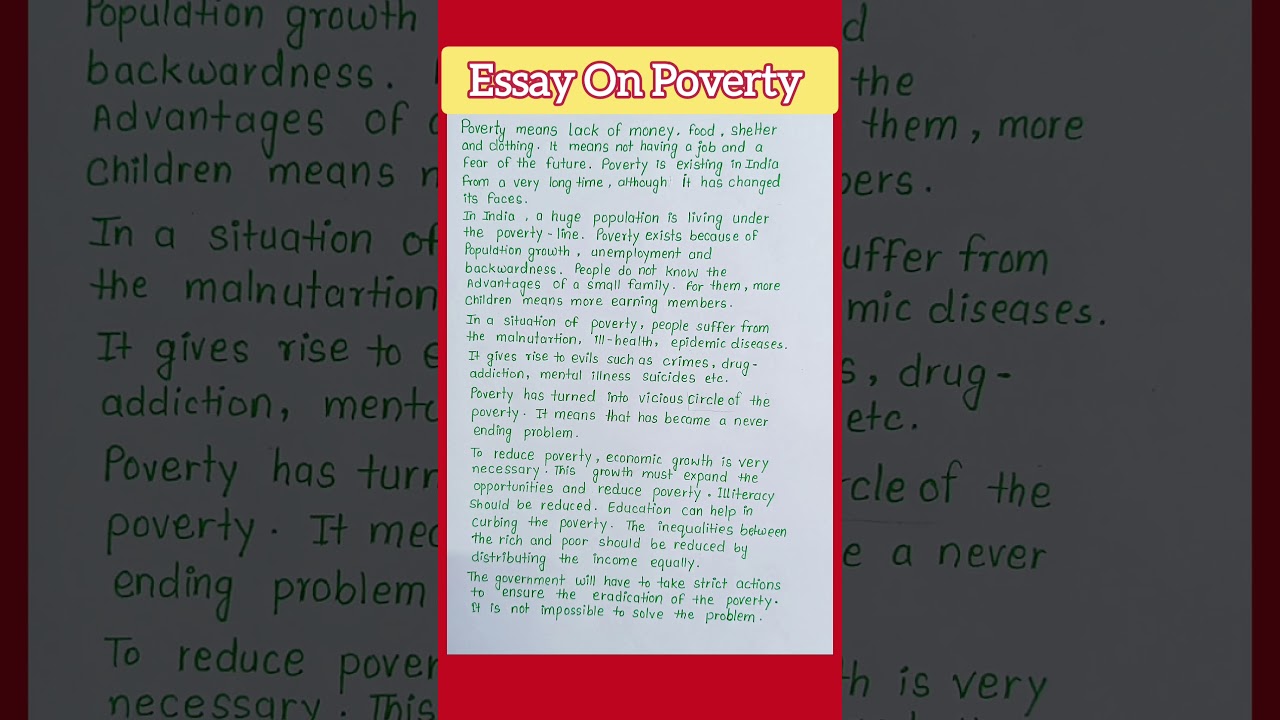 Essay On Poverty
Poverty means lack of money, food, shelter
and clothing. It means not having a job and a
fear of the future. Poverty is existing in India
from a very long time, although it has changed
its faces.
In India, a huge population is living under
the poverty-line. Poverty exists because of
Population growth, unemployment and
backwardness. People do not know the
Advantages of a small family. For them, more
Children means more earning members.
In a situation of poverty, people suffer from
the malnutartion, ill-health, epidemic diseases.
It gives rise to evils such as crimes, drug-
addiction, mental illness suicides etc.
Poverty has turned into vicious circle of the
poverty. It means that has became a never
ending problem.
To reduce poverty, economic growth is very
necessary. This growth must expand the
opportunities and reduce poverty. Illiteracy
should be reduced. Education can help in
curbing the poverty. The inequalities between
the rich and poor should be reduced by
distributing the income equally.
The government will have to take strict actions
to ensure the eradication of the poverty.
It is not impossible to solve the problem.
Population growth
backwardness.
Advantages of
Children means
In a situation of
the malnutartion
It gives rise to
addiction,
Poverty has
poverty. It
ending problem
To reduce
necessary. This
the
them, more
suffer from
diseases.
drug-
etc.
circle of the
a never
is very